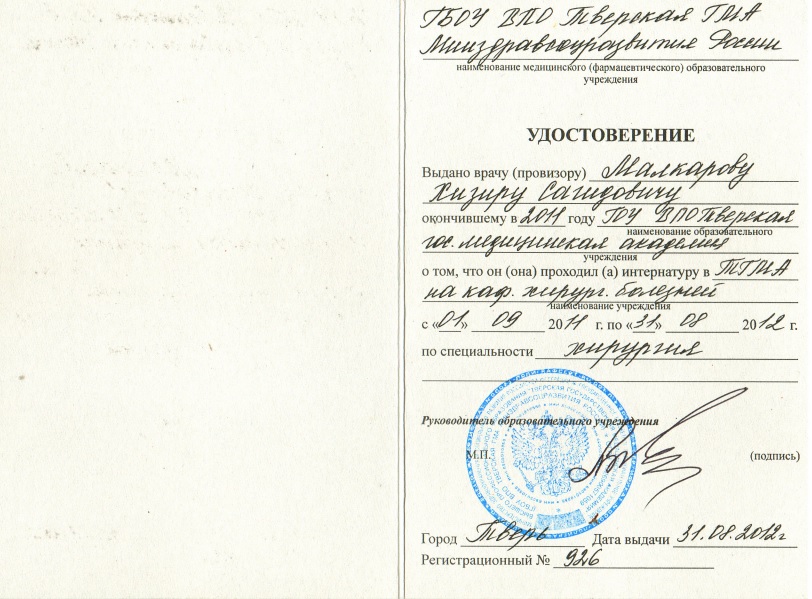 ГБОУ ВПО Тверская ГМА
Минздравсоцразвития России
наименование медицинского (фармацевтического) образовательного
учреждения
УДОСТОВЕРЕНИЕ
Выдано врачу (провизору) Малкарову
Хизиру Сагидовичу
окончившему в 2011 году ГОУ ВПО Тверская
наименование образовательного
гос. медицинская академия
учреждения
о том, что он (она) проходил (а) интернатуру в ТГМА
на каф. хирург. болезней
наименование учреждения
с «01» 09 2011 г. по «31» 08 2012 г.
по специальности хирургия
Руководитель образовательного учреждения
М.П. (подпись)
Город Тверь Дата выдачи 31.08.2012г
Регистрационный № 926